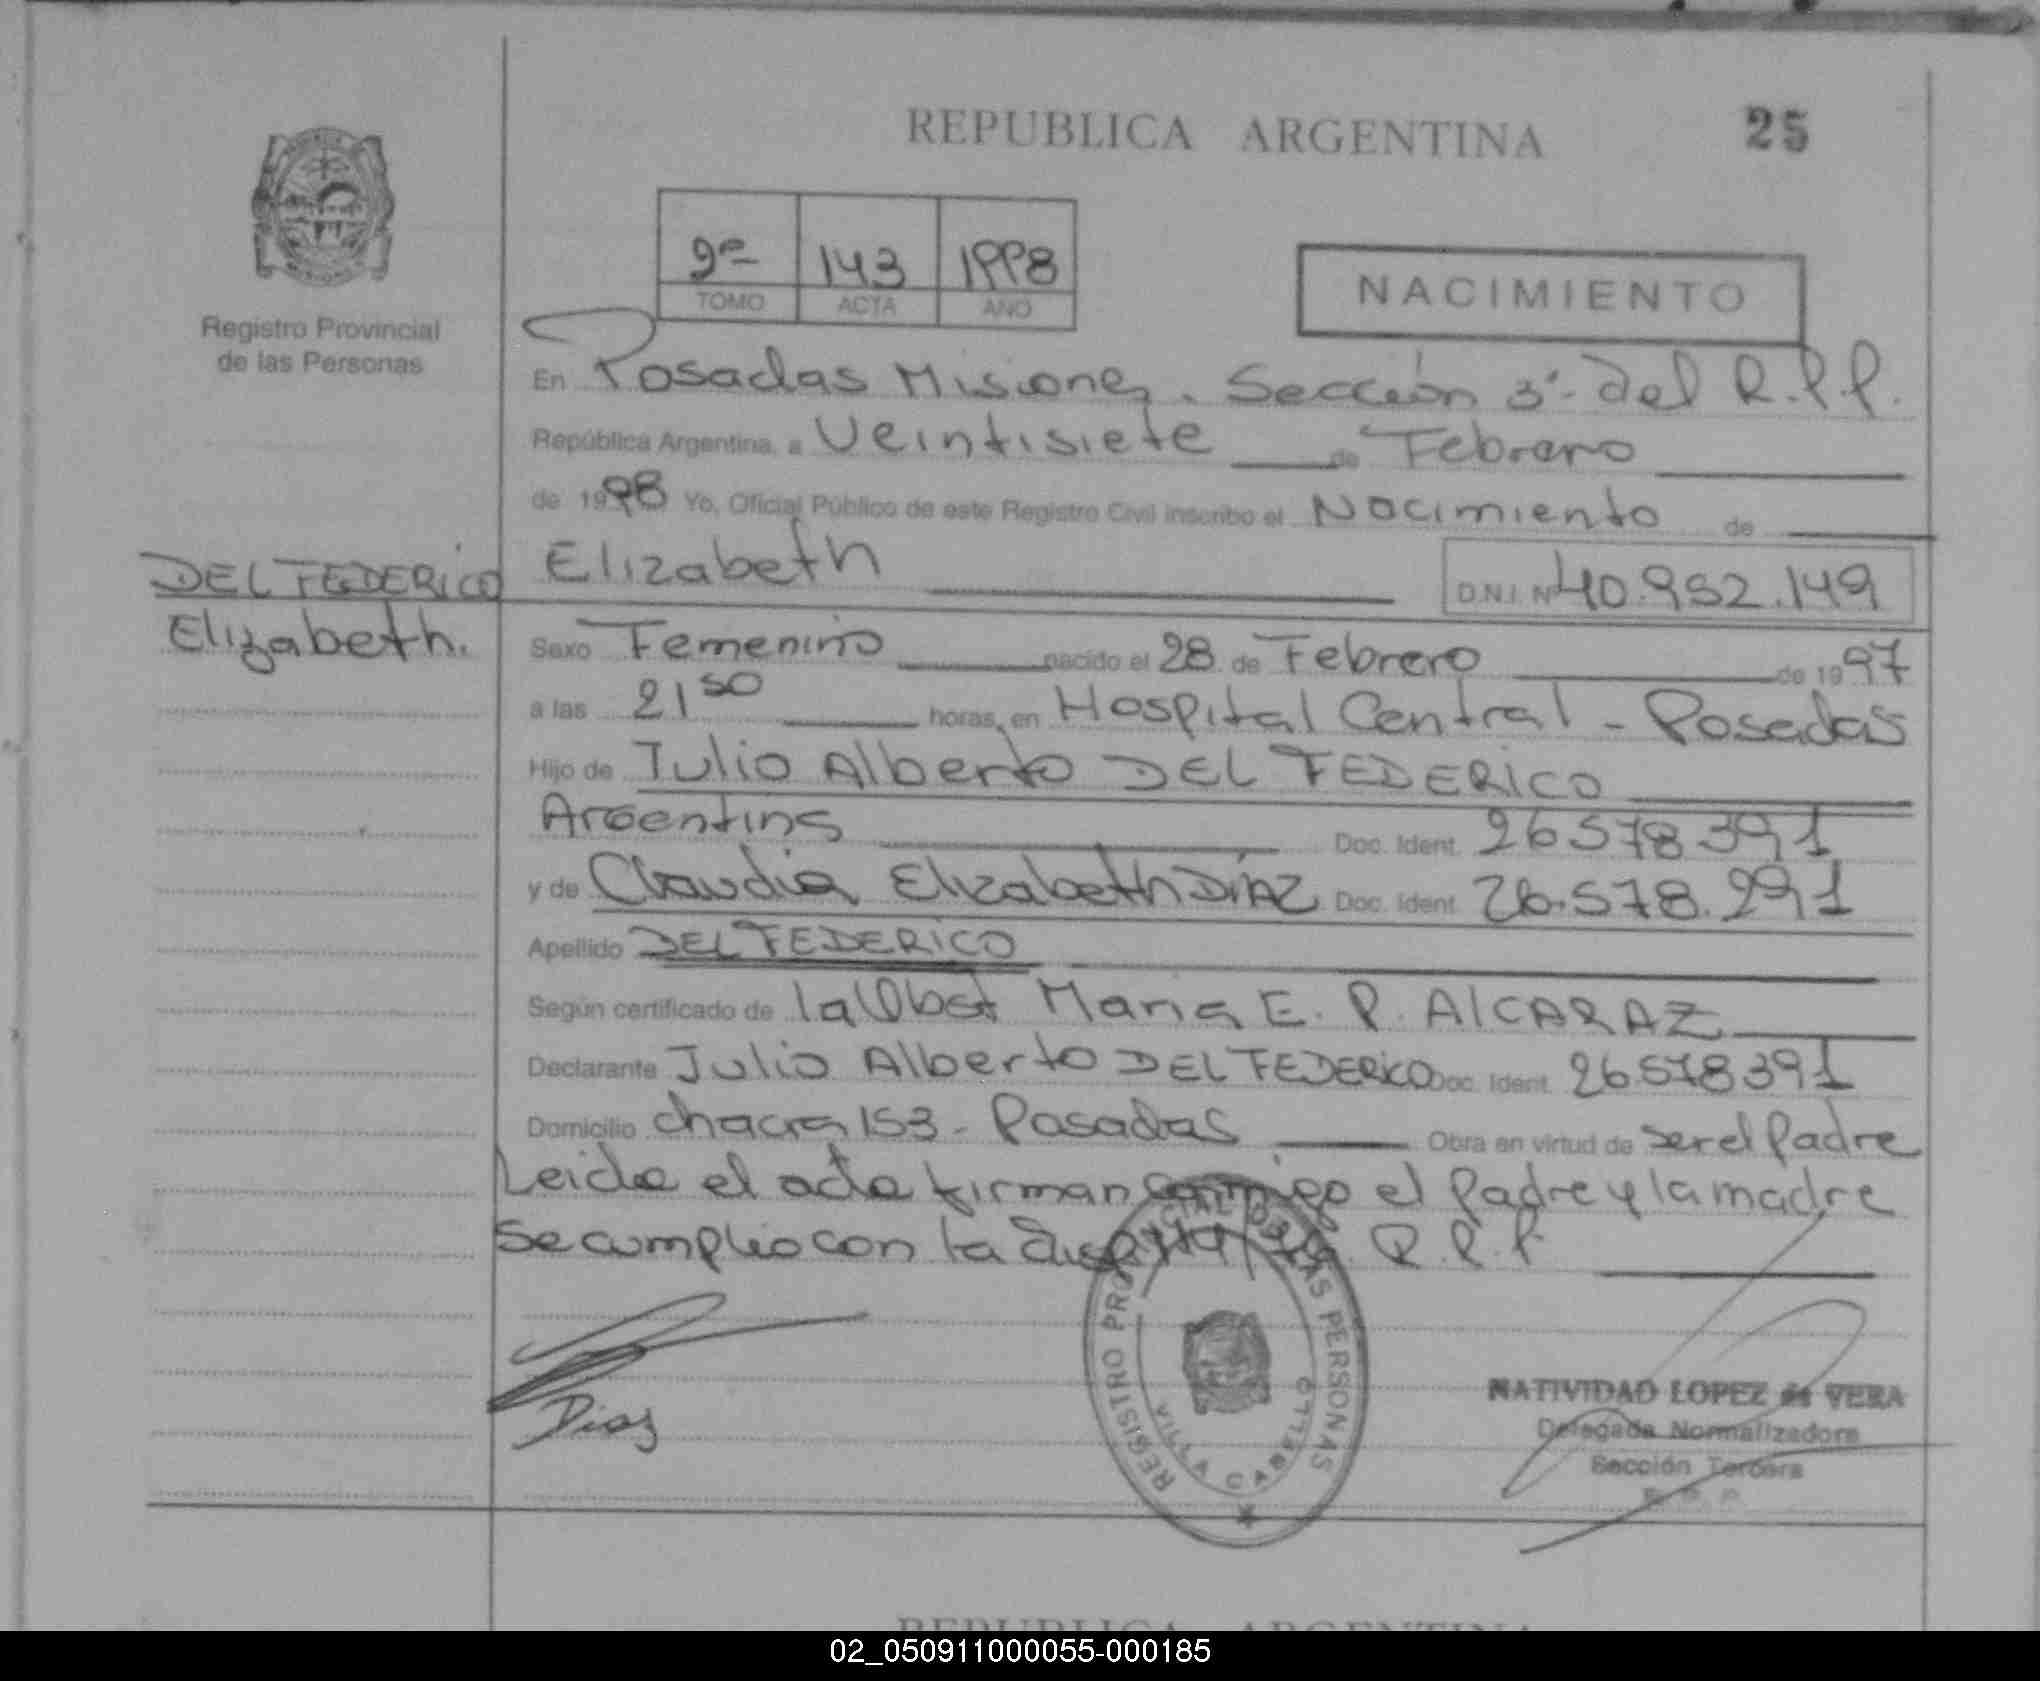 REPUBLICA ARGENTINA
25
9º 143 1998
TOMO ACTA AÑO
NACIMIENTO
Registro Provincial
de las Personas
En Posadas Misiones. Sección 3ª. del R.P.P.
República Argentina, a Veintisiete de Febrero
de 1998 Yo, Oficial Público de este Registro Civil inscribo el Nacimiento de
DEL FEDERICO
Elizabeth.
Elizabeth
D.N.I. Nº 40.952.149
Sexo Femenino nacido el 28 de Febrero de 1997
a las 21 50 horas, en Hospital Central - Posadas
Hijo de Julio Alberto DEL FEDERICO
Argentina Doc. Ident. 26578391
y de Claudia Elizabeth DIAZ Doc. Ident. 26.578.291
Apellido DEL FEDERICO
Según certificado de la Obst Maria E. P. AlCARAZ
Declarante Julio Alberto DEL FEDERICO Doc. Ident. 26578391
Domicilio chacra 153 - Posadas Obra en virtud de ser el Padre
Leida el acta firman conmigo el Padre y la madre
Se cumplio con la R.P.P
Diaz
REGISTRO PROVINCIAL DE LAS PERSONAS
VILLA CABELLO
NATIVIDAD LOPEZ de VERA
Delegada Normalizadora
Sección Tercera
REPUBLICA ARGENTINA
02_050911000055-000185